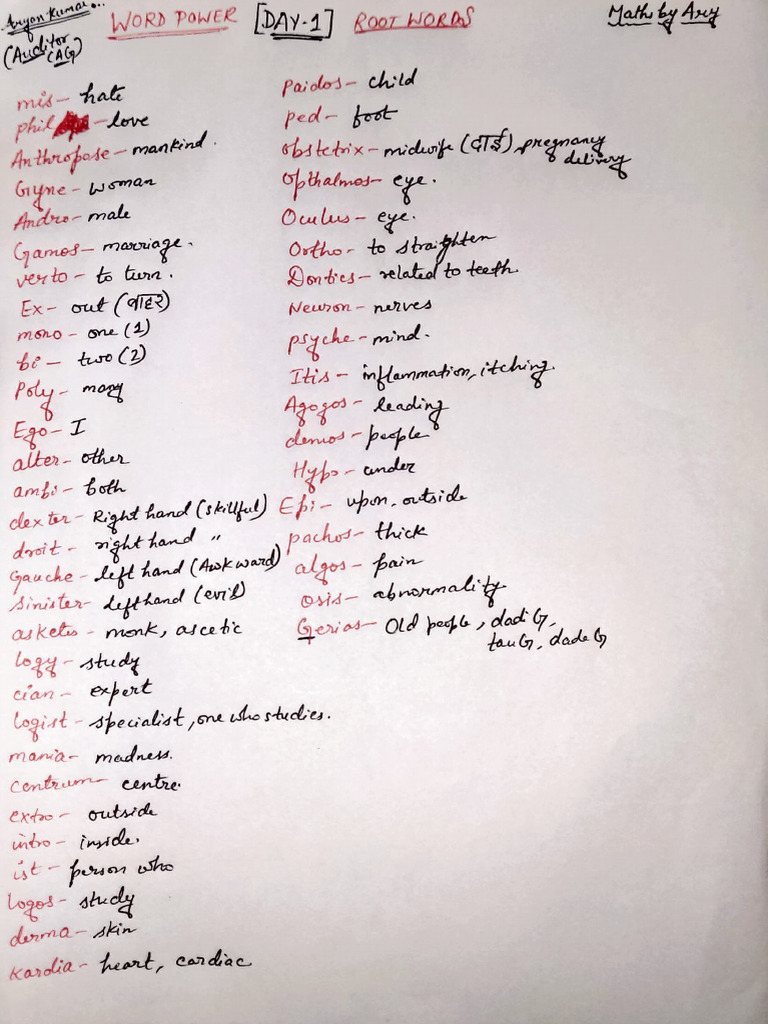 Aryan Kumar...
(Auditor CAG)
WORD POWER [DAY-1] ROOT WORDS
Maths by Ary
mis - hate
phil - love
Anthropose - mankind.
Gyne - woman
Andro - male
Gamos - marriage.
verto - to turn.
Ex - out (बाहर)
mono - one (1)
bi - two (2)
Poly - many
Ego - I
alter - other
ambi - both
dexter - Right hand (skillful)
droit - right hand "
Gauche - left hand (Awkward)
Sinister - left hand (evil)
asketes - monk, ascetic
logy - study
cian - expert
logist - specialist, one who studies.
mania - madness.
centrum - centre.
extro - outside
intro - inside.
ist - person who
logos - study
derma - skin
Kardia - heart, cardiac
Paidos - child
ped - foot
obstetrix - midwife (दाई), pregnancy
delivery
Opthalmos - eye.
Oculus - eye.
Ortho - to straighten
Dontics - related to teeth.
Neuron - nerves
psyche - mind.
Itis - inflammation, itching.
Agogos - leading
demos - people
Hypo - under
Epi - upon, outside
pachos - thick
algos - pain
osis - abnormality
Gerias - Old people, dadi G,
tau G, dada G